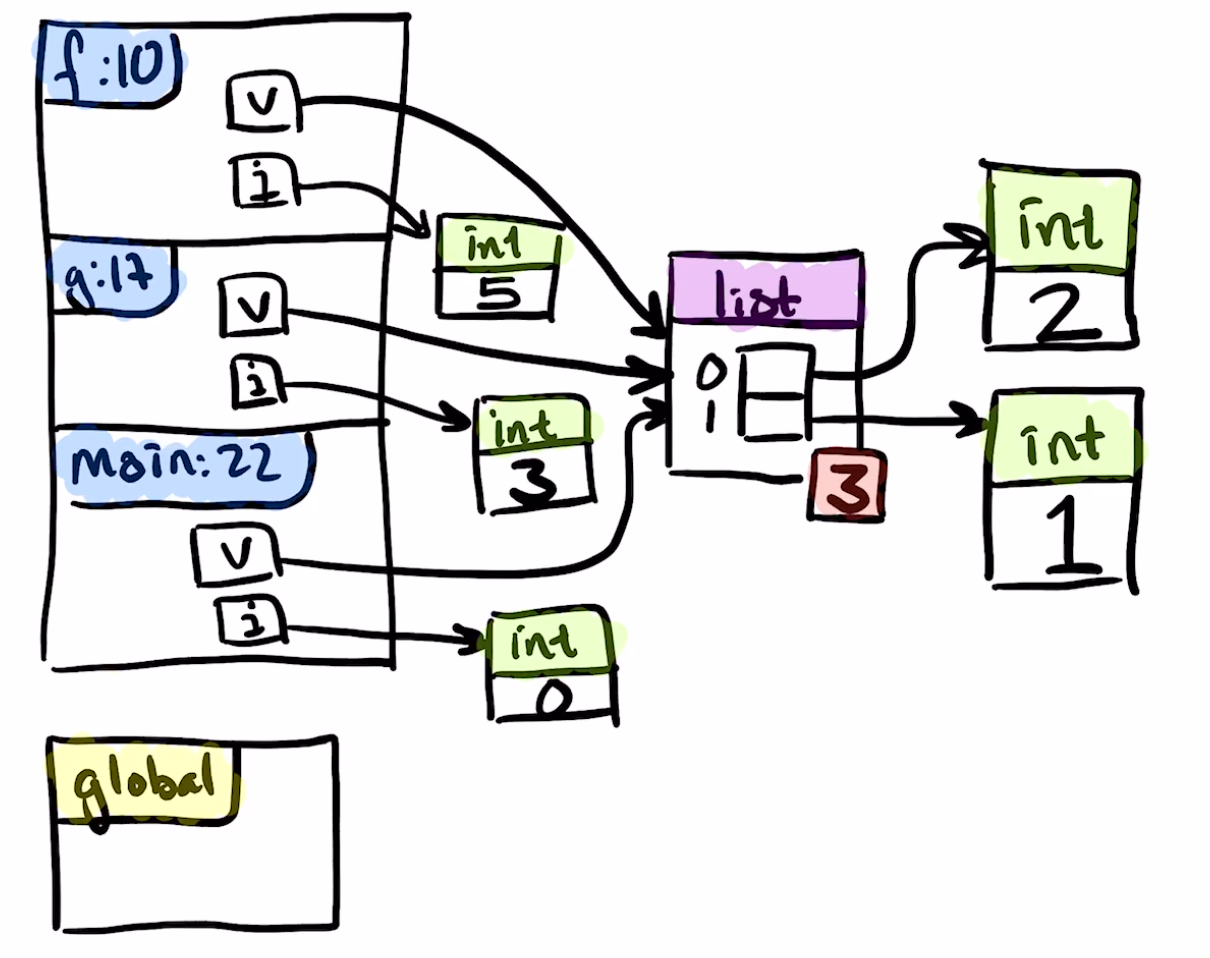 f:10
v
i
int
5
g:17
v
i
int
3
main:22
v
i
int
0
list
0
1
3
int
2
int
1
global